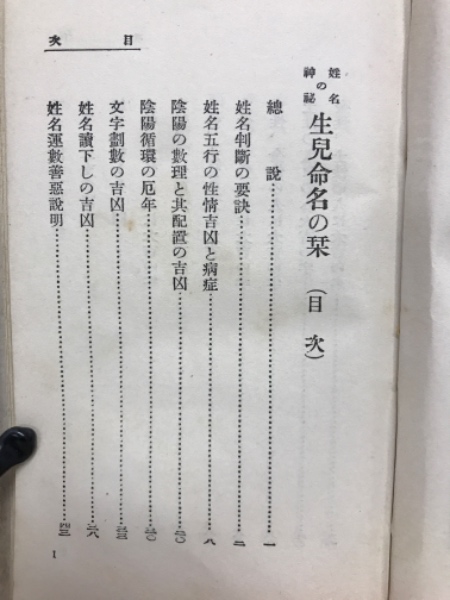 目次
姓名の神祕
生兒命名の栞（目次）
總說…一
姓名判斷の要訣…二
姓名五行の性情吉凶と病症…八
陰陽の數理と其配置の吉凶…二〇
陰陽循環の厄年…三〇
文字劃數の吉凶…三三
姓名讀下しの吉凶…三八
姓名運數善惡說明…四三
1